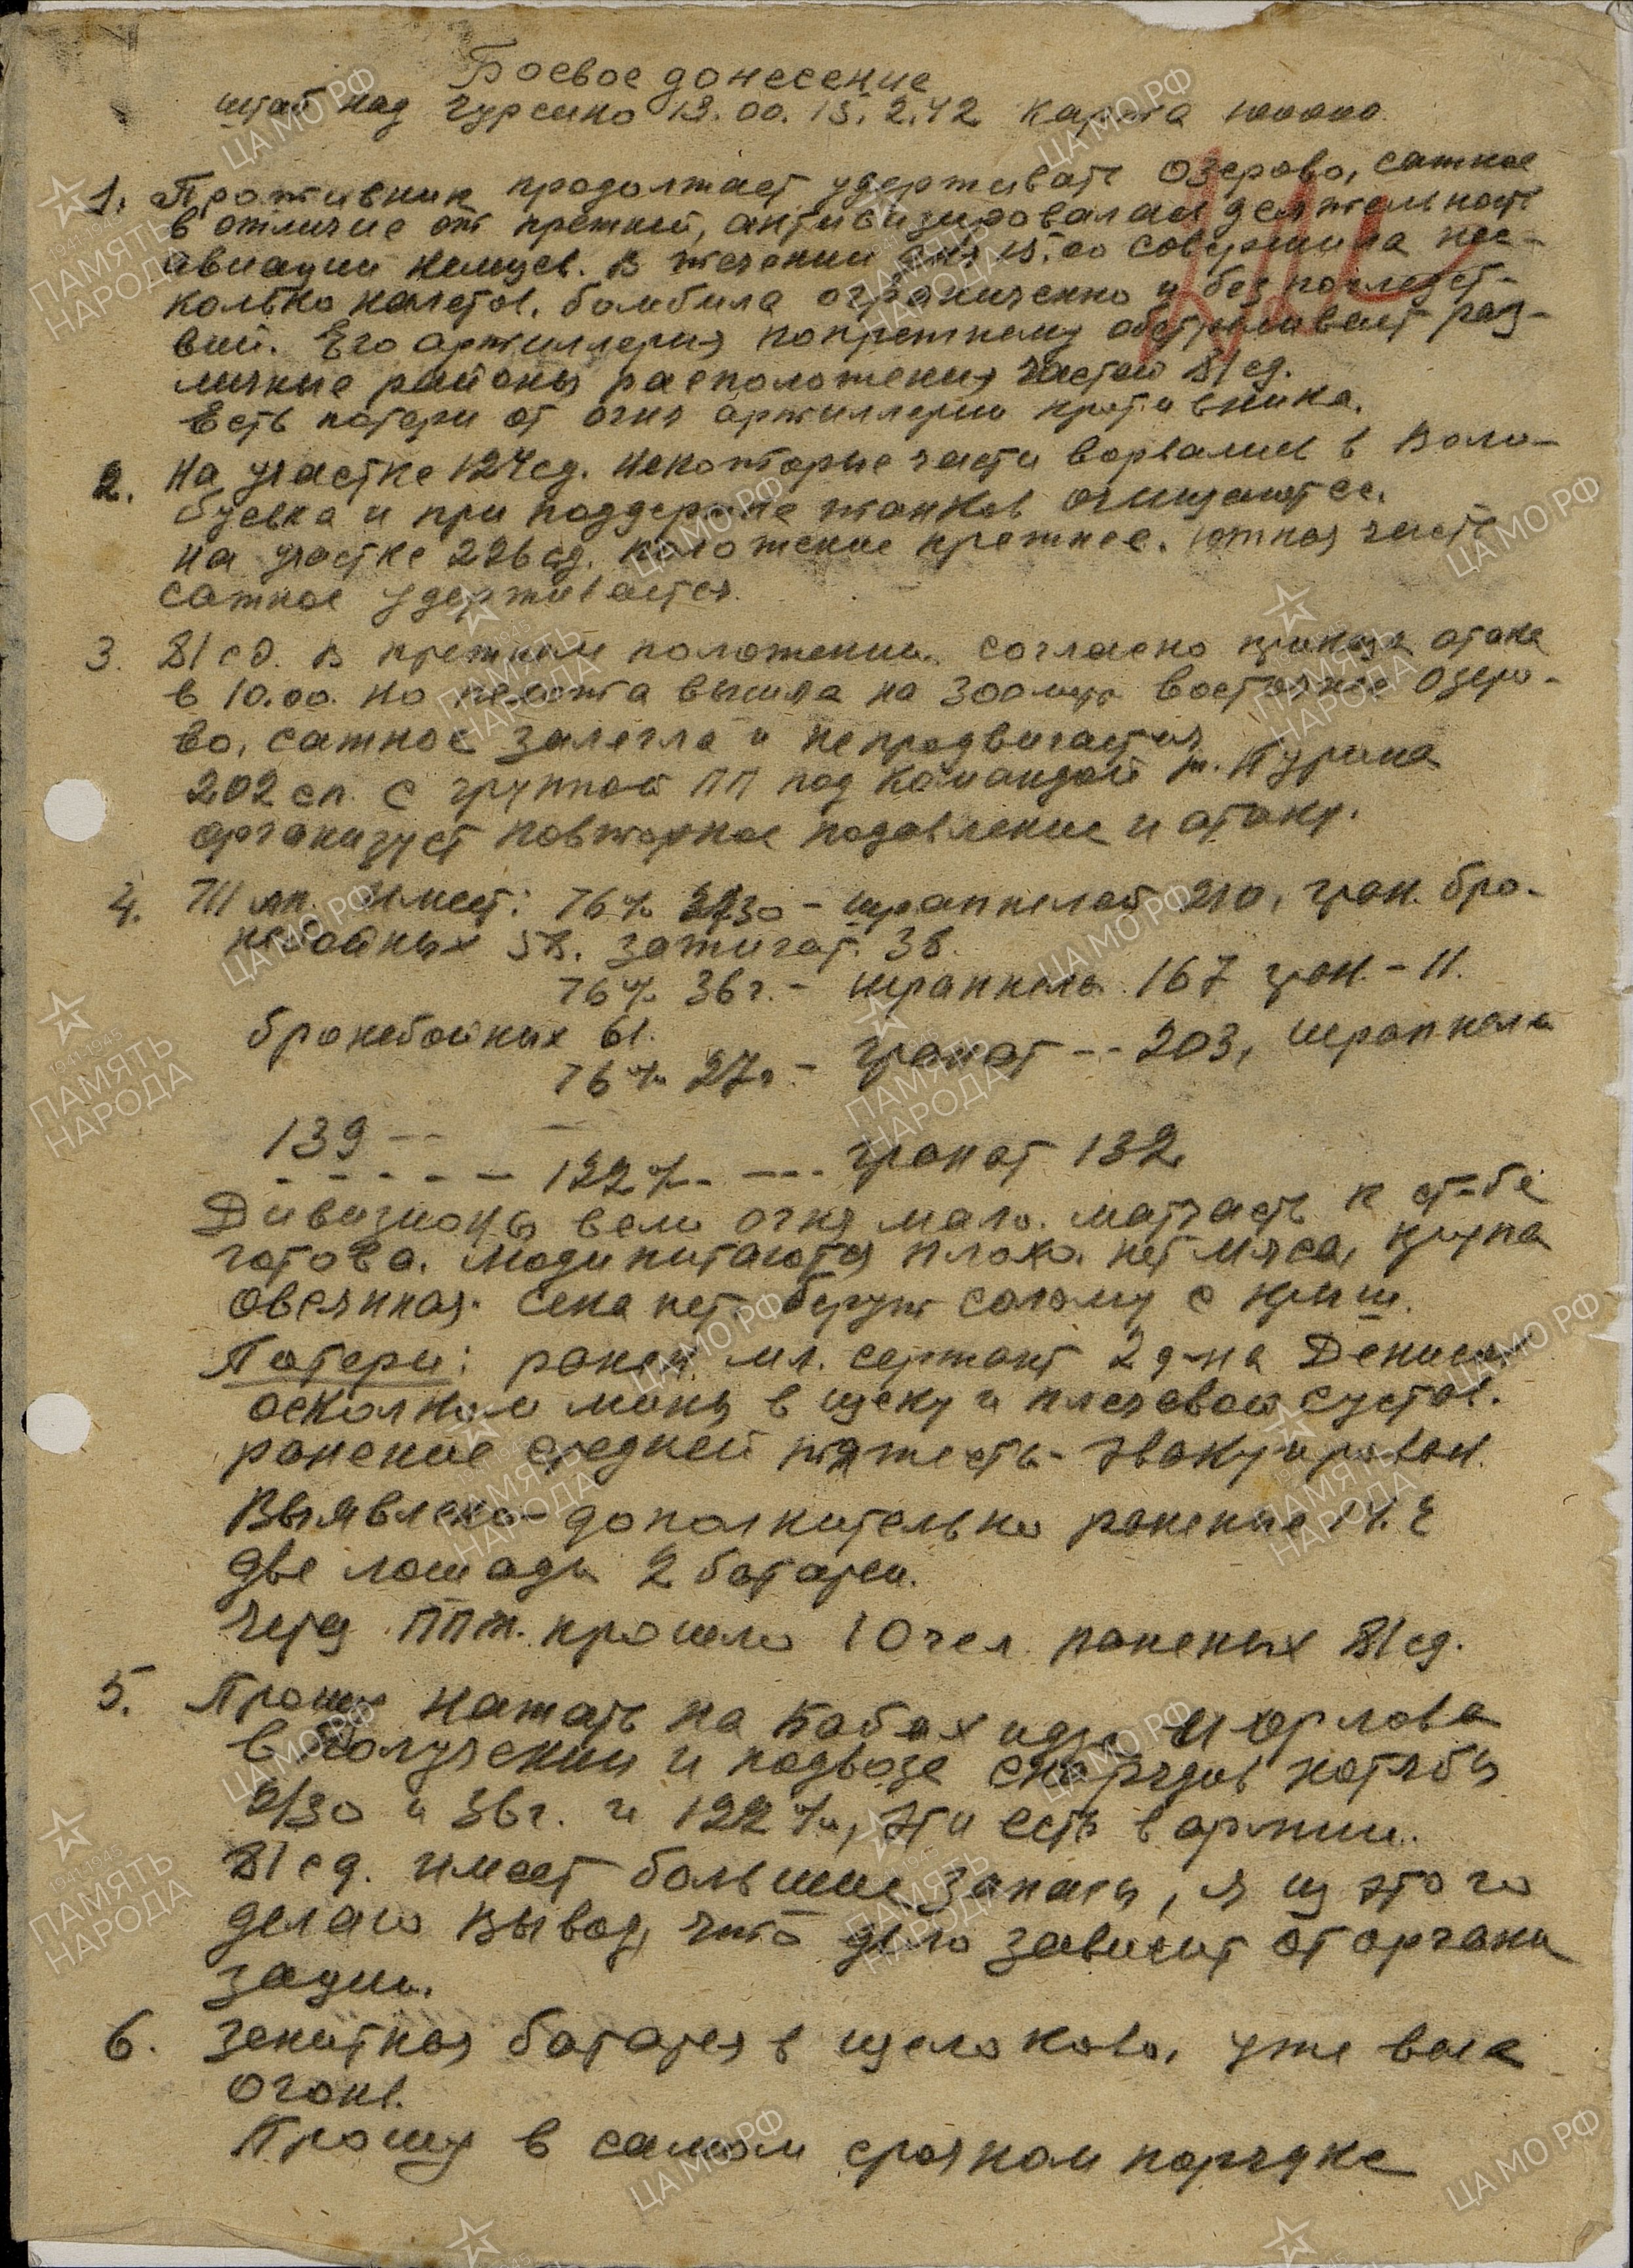 Боевое донесение
штаб над Гурсино 19.00. 15.2.42 карта 100000.
1. Противник продолжает удерживать Озерово, сажное
в отличие от прежней, активизировалась деятельность
авиации немцев. В течении дня 15.00 совершила нес-
колько налетов. бомбила ограниченно и без последст-
вий. Его артиллерия попрежнему обстреливает раз-
личные районы расположения частей 81 сд.
Есть потери от огня артиллерии противника.
2. На участке 124 сд. некоторые части ворвались в Воло-
буевка и при поддержке танков очищается.
на участке 226 сд. положение прежнее. южная часть
сажное удерживается.
3. 81 сд. в прежнем положении. согласно приказа атака
в 10.00. но пехота вышла на 300 мтр восточнее Озеро-
во, сажное залегла и непродвигается
202 сп. с группой ПП под командой т.
организует повторное подавление и атаку.
4. ап. имеет: 76% 2/30 - шрапнелей 210, гран. бро-
небойных 58. зажигат. 38.
76% 36г. - шрапнель 167 гран. - 11.
бронебойных 61.
76% 27г. - гранат -- 203, шрапнели
139 --
- - - - - 122%. --- гранат 132
Дивизионы вели огня мало. матчасть к ст-бе
готова. люди питаются плохо. нет мяса, крупа
овсянная. Сена нет берут солому с крыш.
Потери: ранен мл. сержант 2 д-на Денисов
осколком мины в щеку и плечевой сустав.
ранение средней тяжести - эвакуирован.
Выявлено дополнительно ранение 14.2
две лошади 2 батареи.
через ППМ. прошло 10 чел раненых 81 сд.
5. Прошу нажать на и Орлова
в получении и подвозе снарядов хотябы
2/30 и 36г. и 122%, эти есть в армии.
81 сд. имеет большие запасы, я из этого
делаю вывод, что дело зависит от органи
зации.
6. Зенитная батарея в щелоково, уже вела
огонь.
Прошу в самом срочном порядке
ЦАМО РФ
ПАМЯТЬ
НАРОДА
1941-1945